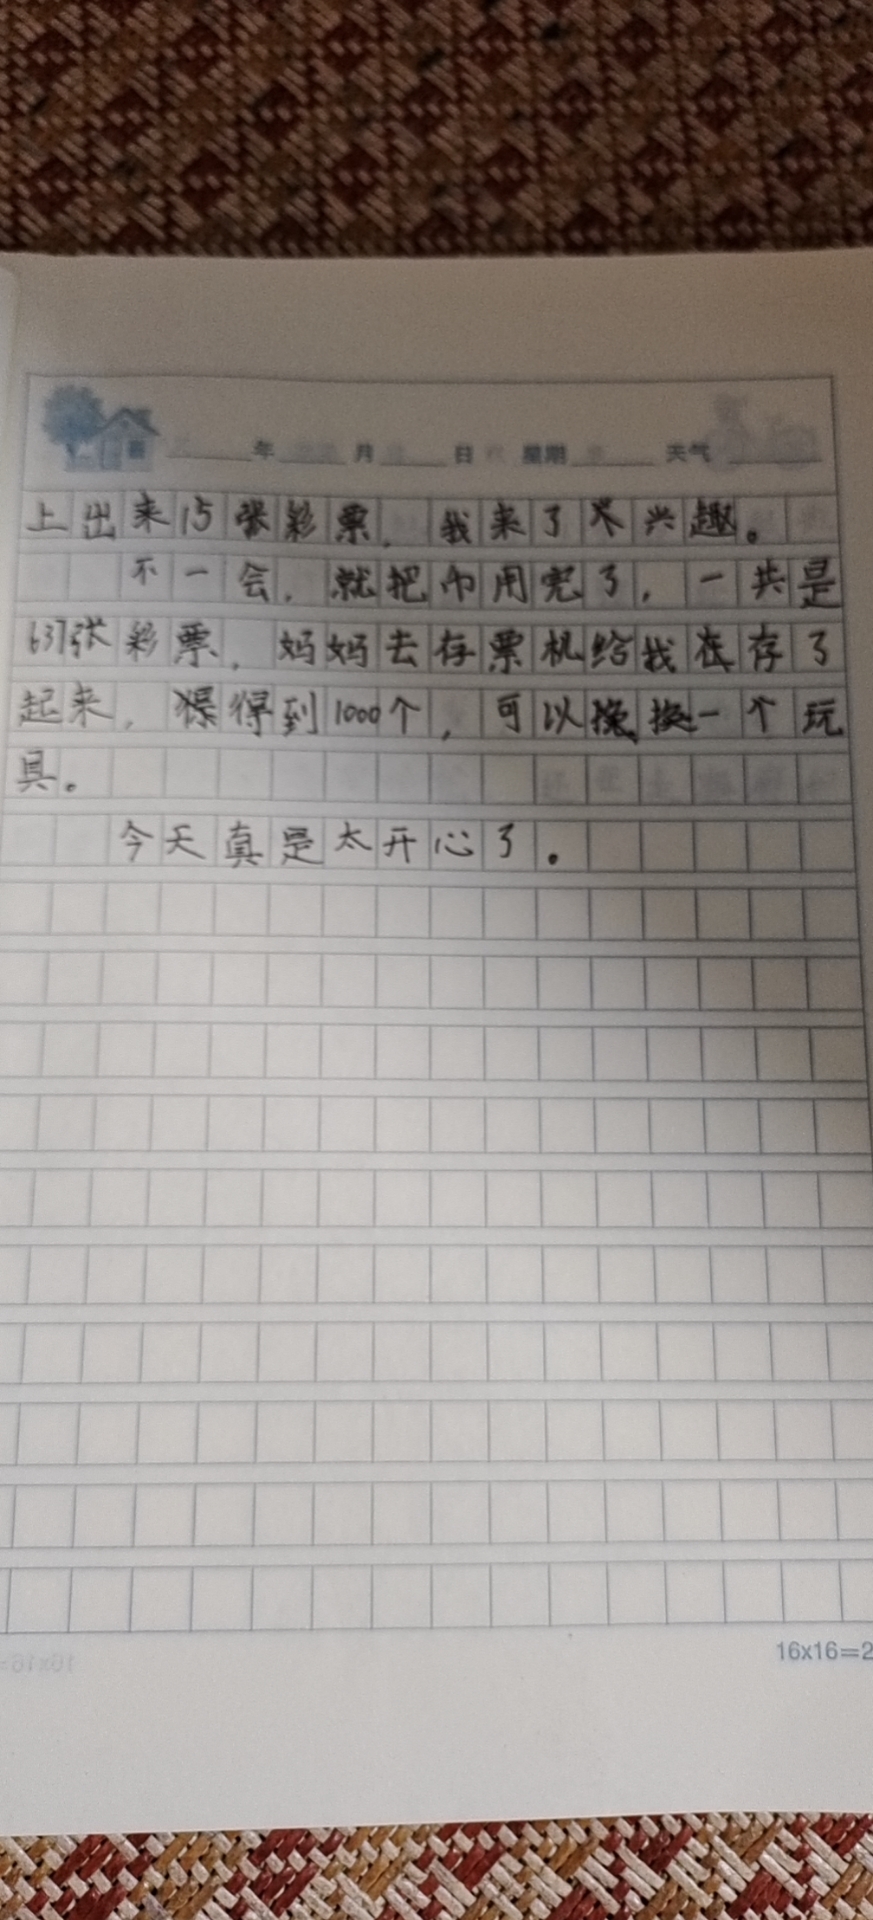 年 月 日 星期 天气
上出来15张彩票，我来了兴趣。
不一会，就把币用完了，一共是
637张彩票，妈妈去存票机给我存了
起来，得到1000个，可以换一个玩
具。
今天真是太开心了。
16x16=2